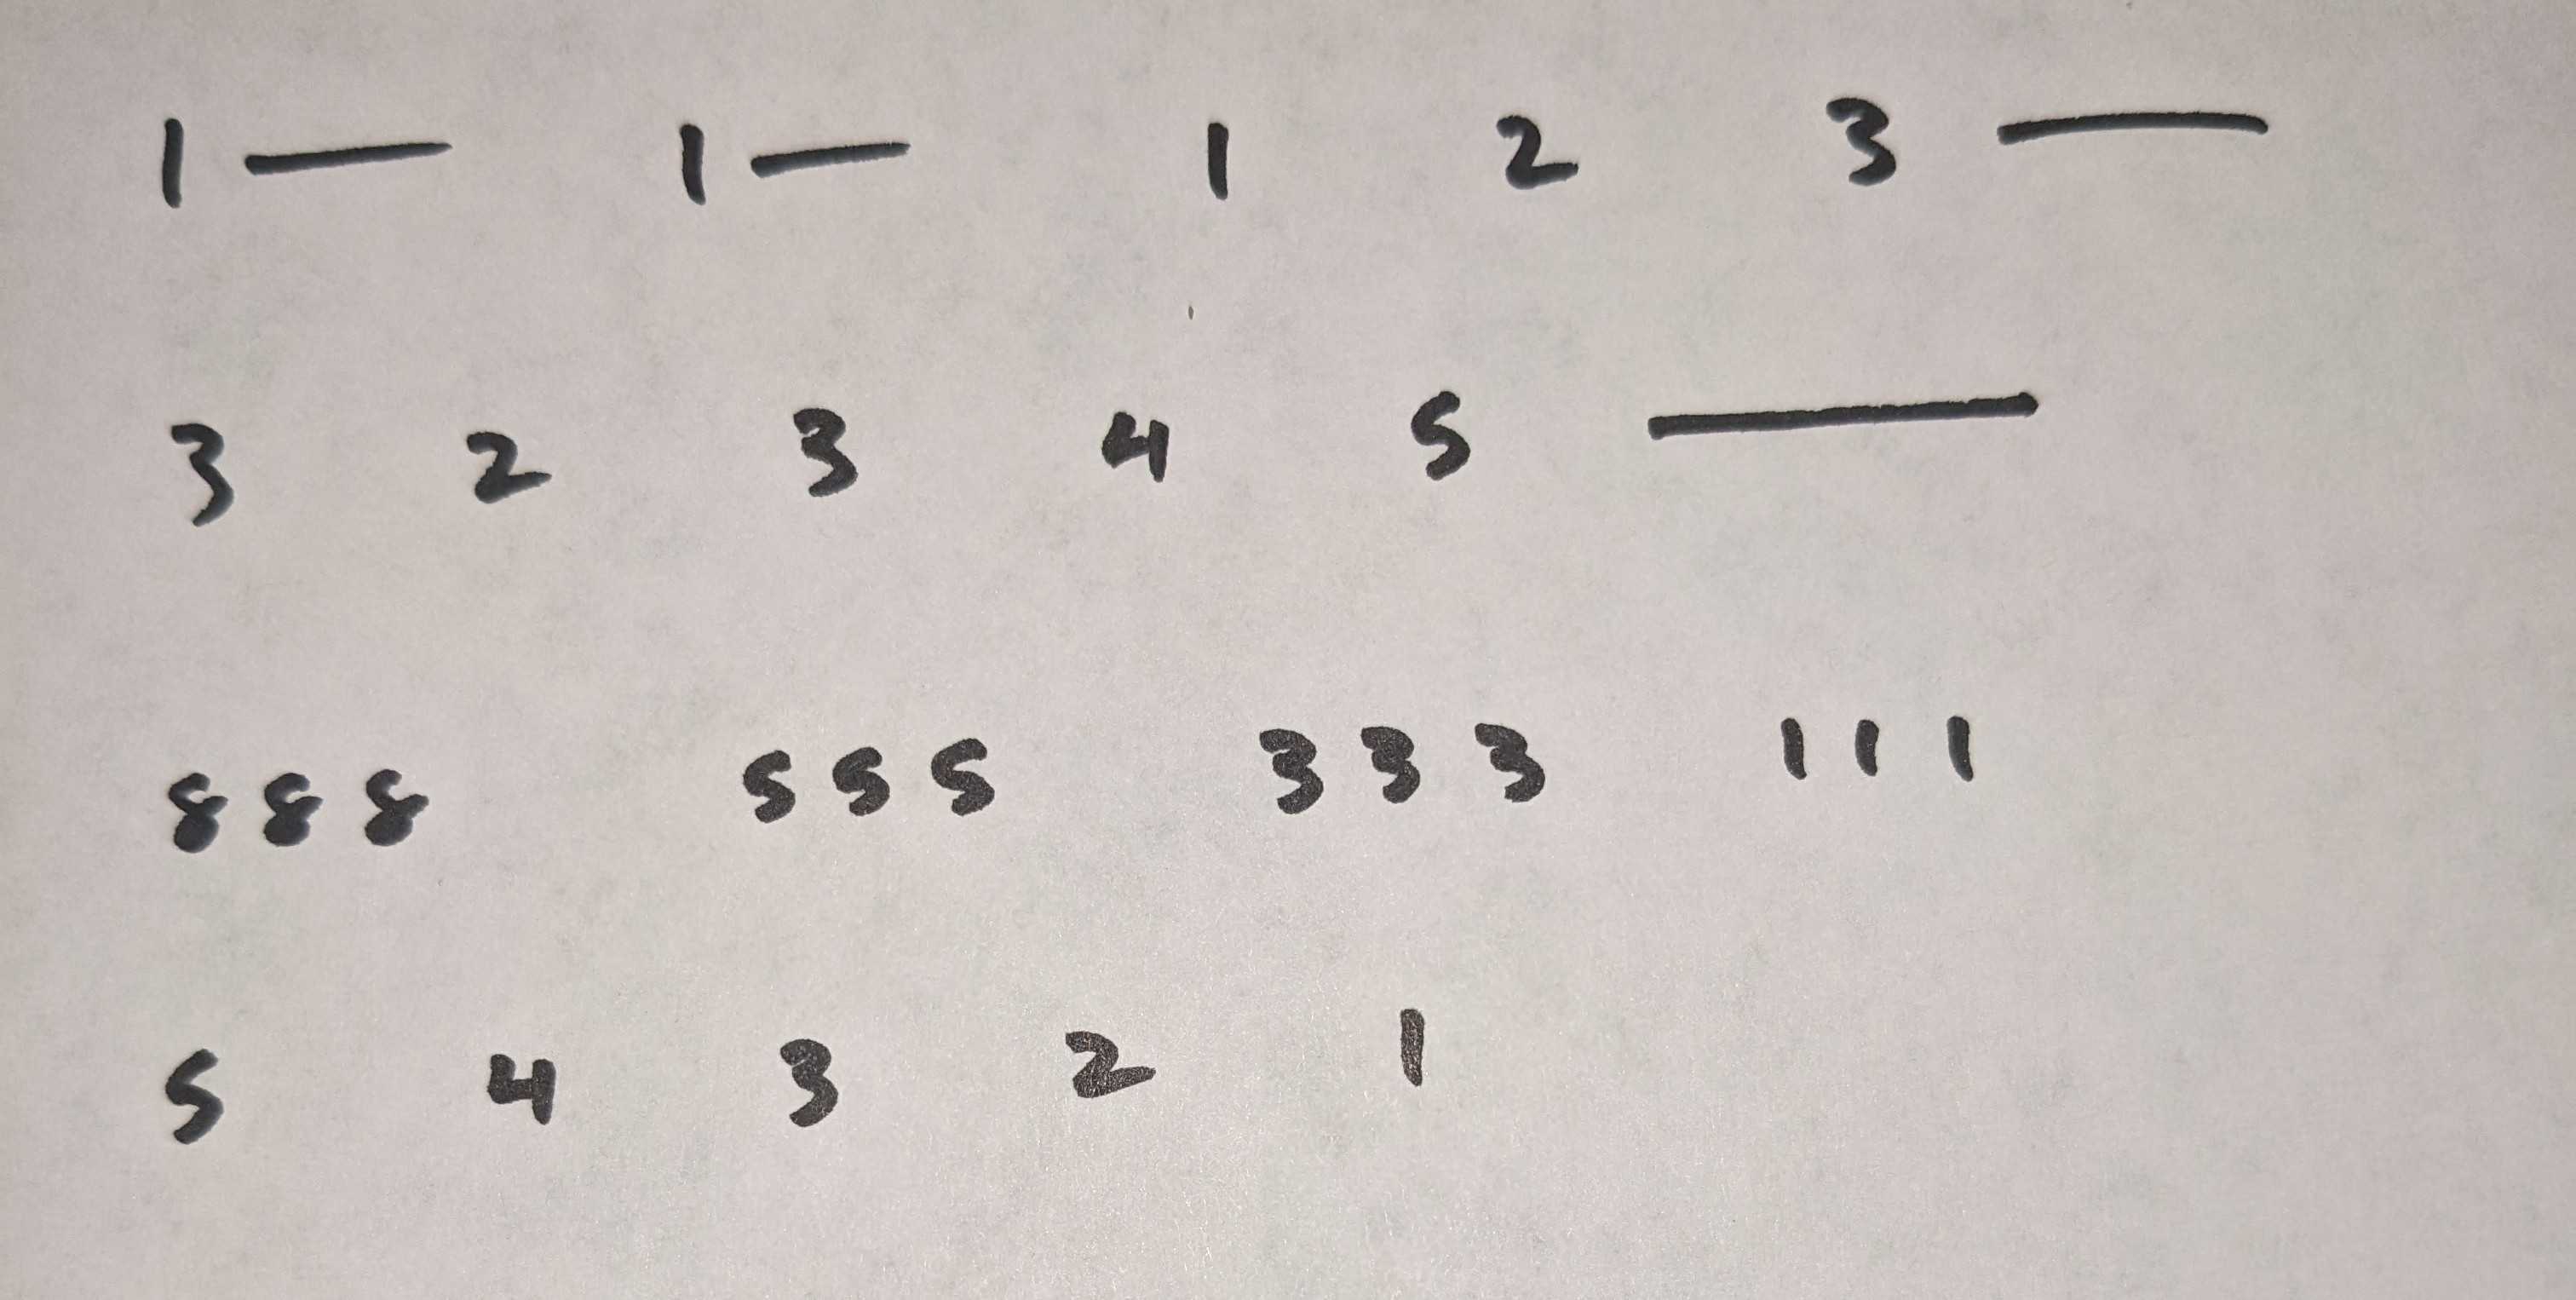 1 — 1 — 1 2 3 —
3 2 3 4 5 —
888 555 333 111
5 4 3 2 1